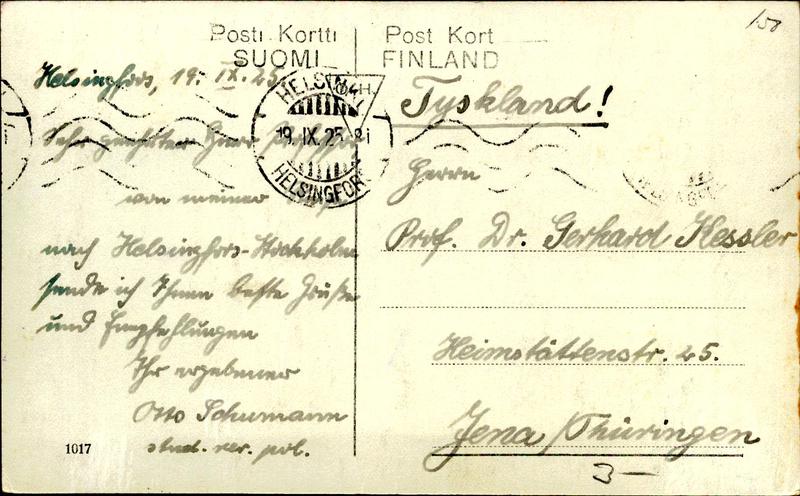 Posti Kortti
SUOMI
Post Kort
FINLAND
150
Helsingfors, 19. IX. 25
HELSINKI
19. IX. 25
HELSINGFORS
Sehr geehrter Herr Professor
von meiner
nach Helsingfors-Stockholm
sende ich Ihnen beste Grüße
und Empfehlungen
Ihr ergebener
Otto Schumann
stud. rer. pol.
1017
Tyskland!
Herrn
Prof. Dr. Gerhard Kessler
Heimstättenstr. 25.
Jena / Thüringen
3 —